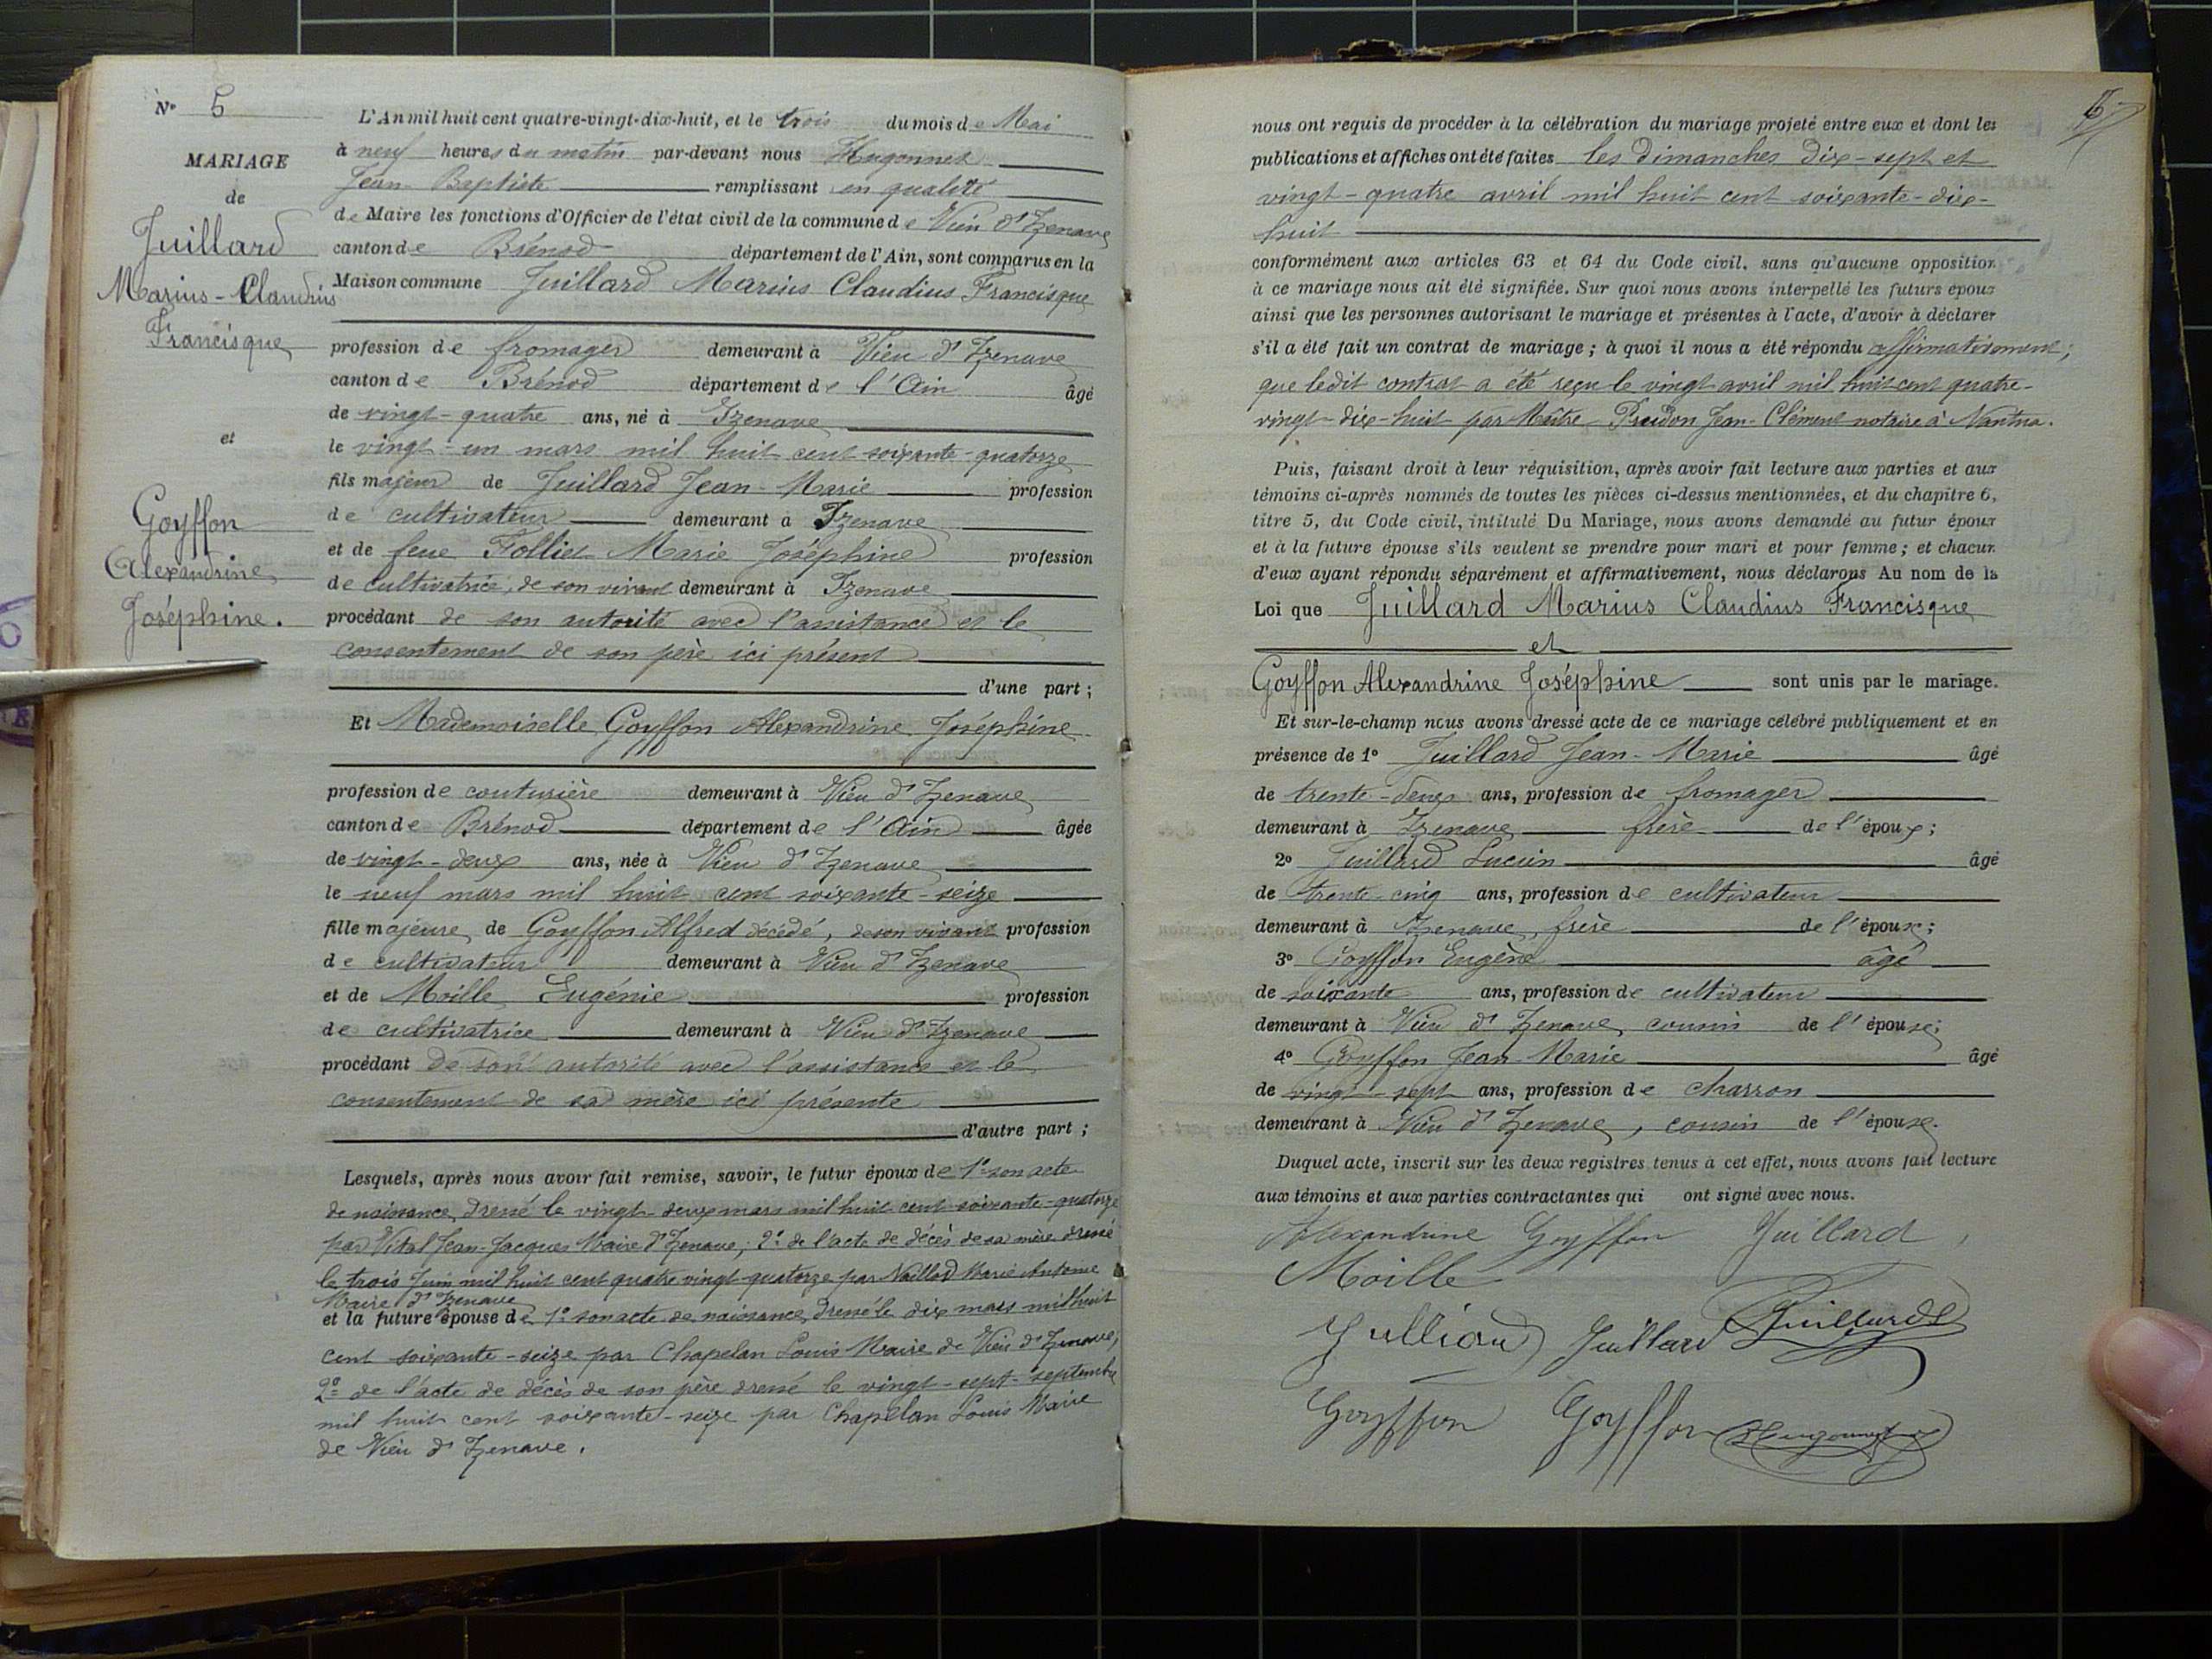 N° 5
MARIAGE
de
Juillard
Marius-Claudius
Francisque
et
Goyffon
Alexandrine
Joséphine.
L'An mil huit cent quatre-vingt-dix-huit, et le trois du mois de Mai
à neuf heures du matin par-devant nous Hugonnet
Jean-Baptiste remplissant en qualité
de Maire les fonctions d'Officier de l'état civil de la commune de Vieu d'Izenave
canton de Brénod département de l'Ain, sont comparus en la
Maison commune Juillard Marius Claudius Francisque
profession de fromager demeurant à Vieu d'Izenave
canton de Brénod département de l'Ain âgé
de vingt-quatre ans, né à Izenave
le vingt-un mars mil huit cent soixante-quatorze
fils majeur de Juillard Jean-Marie profession
de cultivateur demeurant à Izenave
et de feue Folliet Marie Joséphine profession
de cultivatrice, de son vivant demeurant à Izenave
procédant de son autorité avec l'assistance et le
consentement de son père ici présent
d'une part ;
Et Mademoiselle Goyffon Alexandrine Joséphine
profession de couturière demeurant à Vieu d'Izenave
canton de Brénod département de l'Ain âgée
de vingt-deux ans, née à Vieu d'Izenave
le neuf mars mil huit cent soixante-seize
fille majeure de Goyffon Alfred décédé, de son vivant profession
de cultivateur demeurant à Vieu d'Izenave
et de Moille Eugénie profession
de cultivatrice demeurant à Vieu d'Izenave
procédant de son autorité avec l'assistance et le
consentement de sa mère ici présente
d'autre part ;
Lesquels, après nous avoir fait remise, savoir, le futur époux de 1° son acte
de naissance, dressé le vingt-deux mars mil huit cent soixante-quatorze
par Vital Jean-Jacques Maire d'Izenave ; 2° de l'acte de décès de sa mère dressé
le trois Juin mil huit cent quatre vingt-quatorze par Naillod Marie Antoine
Maire d'Izenave
et la future épouse de 1° son acte de naissance, dressé le dix mars mil huit
cent soixante-seize par Chapelan Louis Maire de Vieu d'Izenave,
2° de l'acte de décès de son père dressé le vingt-sept-septembre
mil huit cent soixante-seize par Chapelan Louis Maire
de Vieu d'Izenave.
nous ont requis de procéder à la célébration du mariage projeté entre eux et dont les
publications et affiches ont été faites les Dimanches dix-sept et
vingt-quatre avril mil huit cent soixante-dix-
huit
conformément aux articles 63 et 64 du Code civil, sans qu'aucune opposition
à ce mariage nous ait été signifiée. Sur quoi nous avons interpellé les futurs époux
ainsi que les personnes autorisant le mariage et présentes à l'acte, d'avoir à déclarer
s'il a été fait un contrat de mariage ; à quoi il nous a été répondu affirmativement ;
que ledit contrat a été reçu le vingt avril mil huit cent quatre-
vingt-dix-huit par Maître Prudon Jean-Clément notaire à Nantua.
Puis, faisant droit à leur réquisition, après avoir fait lecture aux parties et aux
témoins ci-après nommés de toutes les pièces ci-dessus mentionnées, et du chapitre 6,
titre 5, du Code civil, intitulé Du Mariage, nous avons demandé au futur époux
et à la future épouse s'ils veulent se prendre pour mari et pour femme ; et chacun
d'eux ayant répondu séparément et affirmativement, nous déclarons Au nom de la
Loi que Juillard Marius Claudius Francisque
et
Goyffon Alexandrine Joséphine sont unis par le mariage.
Et sur-le-champ nous avons dressé acte de ce mariage célébré publiquement et en
présence de 1° Juillard Jean-Marie âgé
de trente-deux ans, profession de fromager
demeurant à Izenave frère de l'époux ;
2° Juillard Lucien âgé
de trente-cinq ans, profession de cultivateur
demeurant à Izenave, frère de l'époux ;
3° Goyffon Eugène âgé
de soixante ans, profession de cultivateur
demeurant à Vieu d'Izenave, cousin de l'épouse ;
4° Goyffon Jean-Marie âgé
de vingt-sept ans, profession de charron
demeurant à Vieu d'Izenave, cousin de l'épouse.
Duquel acte, inscrit sur les deux registres tenus à cet effet, nous avons fait lecture
aux témoins et aux parties contractantes qui ont signé avec nous.
Alexandrine Goyffon Juillard
Moille
Juillard Juillard Juillard
Goyffon Goyffon Hugonnet